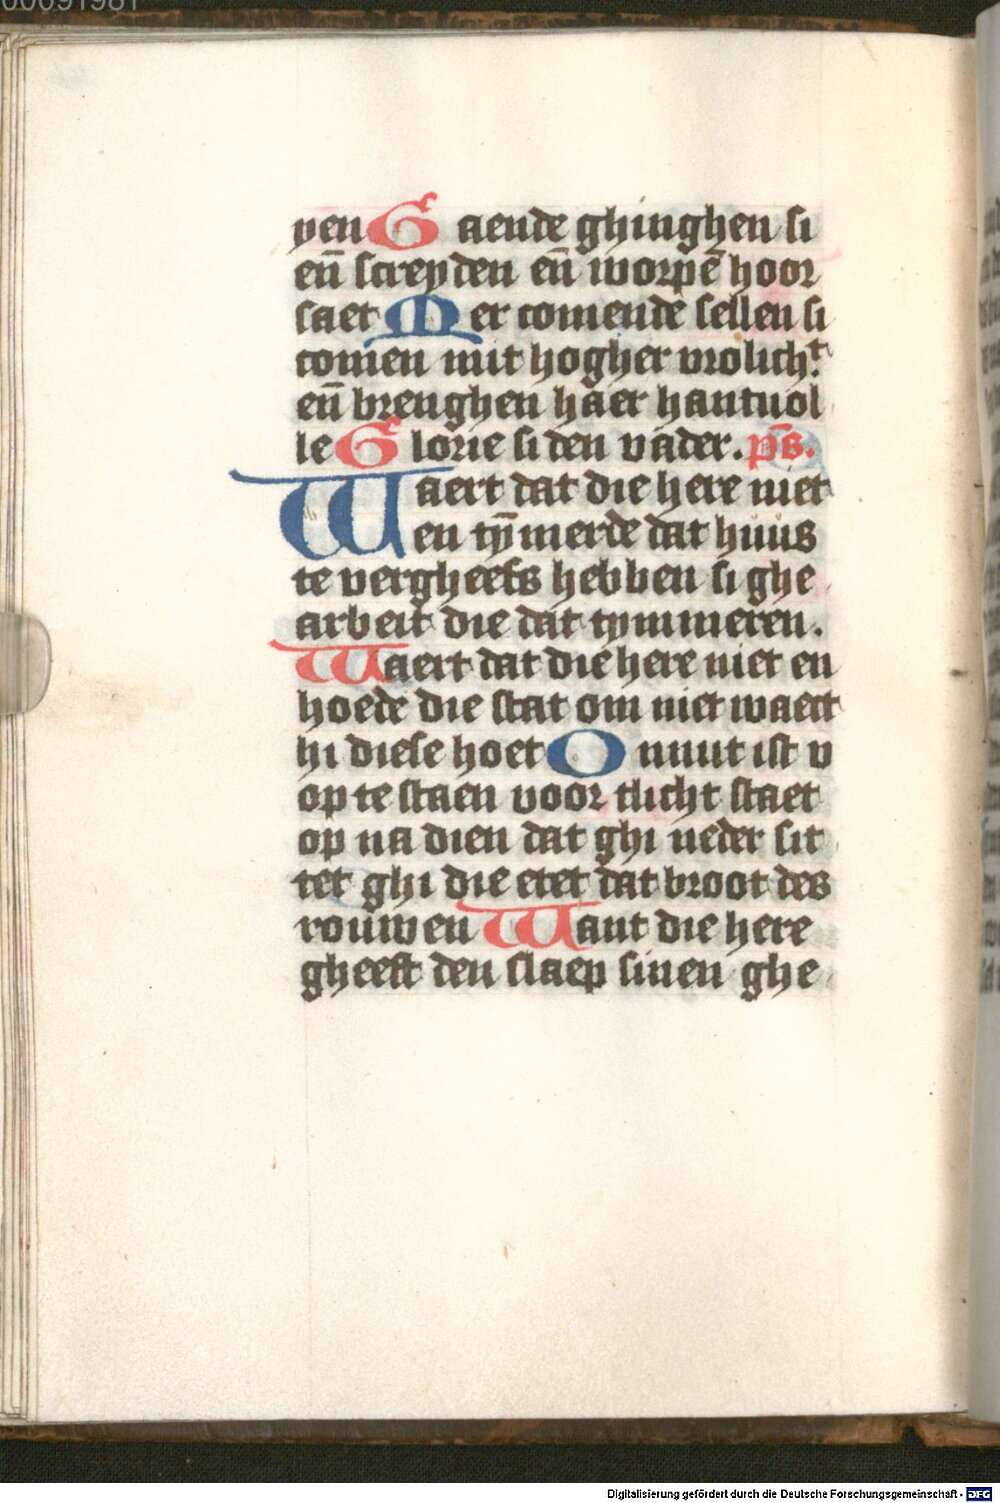 00091981
yen Gaende ghinghen si
en̄ screyden en̄ worpē hoer
saet Mer comende sellen si
comen mit hogher vrolich.t
en̄ brenghen haer hantuol
le Glorie si den vader. ps̄.
Waert dat die here niet
en tȳmerde dat huus
te vergheefs hebben si ghe
arbeit die dat tymmeren.
Waert dat die here niet en
hoede die stat om niet waert
hi diese hoet Onnut ist v
op te staen voor tlicht staet
op na dien dat ghi neder sit
tet ghi die etet dat broot des
rouwen Want die here
gheeft den slaep sinen ghe
Digitalisierung gefördert durch die Deutsche Forschungsgemeinschaft - DFG